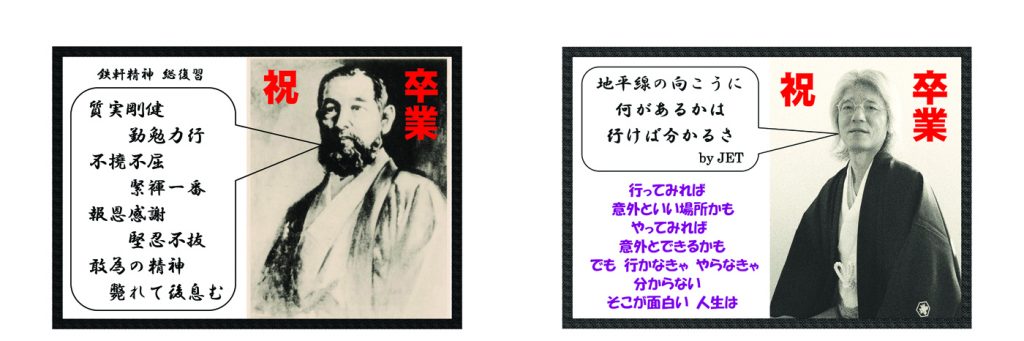 鉄軒精神 総復習
質実剛健
勤勉力行
不撓不屈
緊褌一番
報恩感謝
堅忍不抜
敢為の精神
斃れて後息む
祝
卒業
地平線の向こうに
何があるかは
行けば分かるさ
by JET
祝
卒業
行ってみれば
意外といい場所かも
やってみれば
意外とできるかも
でも 行かなきゃ やらなきゃ
分からない
そこが面白い 人生は